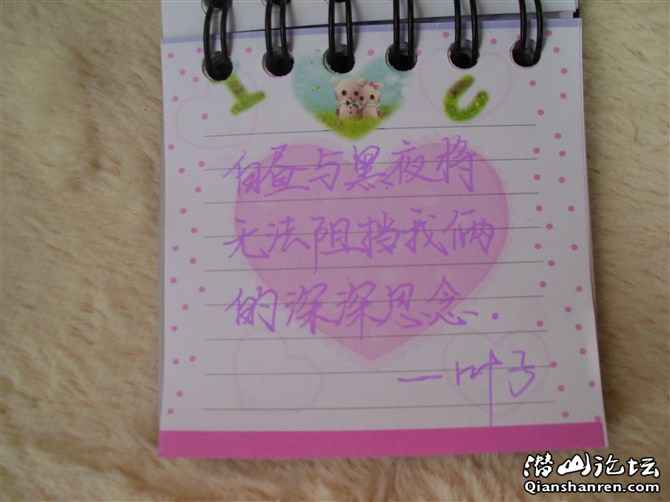 I U
白昼与黑夜将
无法阻挡我俩
的深深思念.
—叶子
潜山论坛
Qianshanren.com